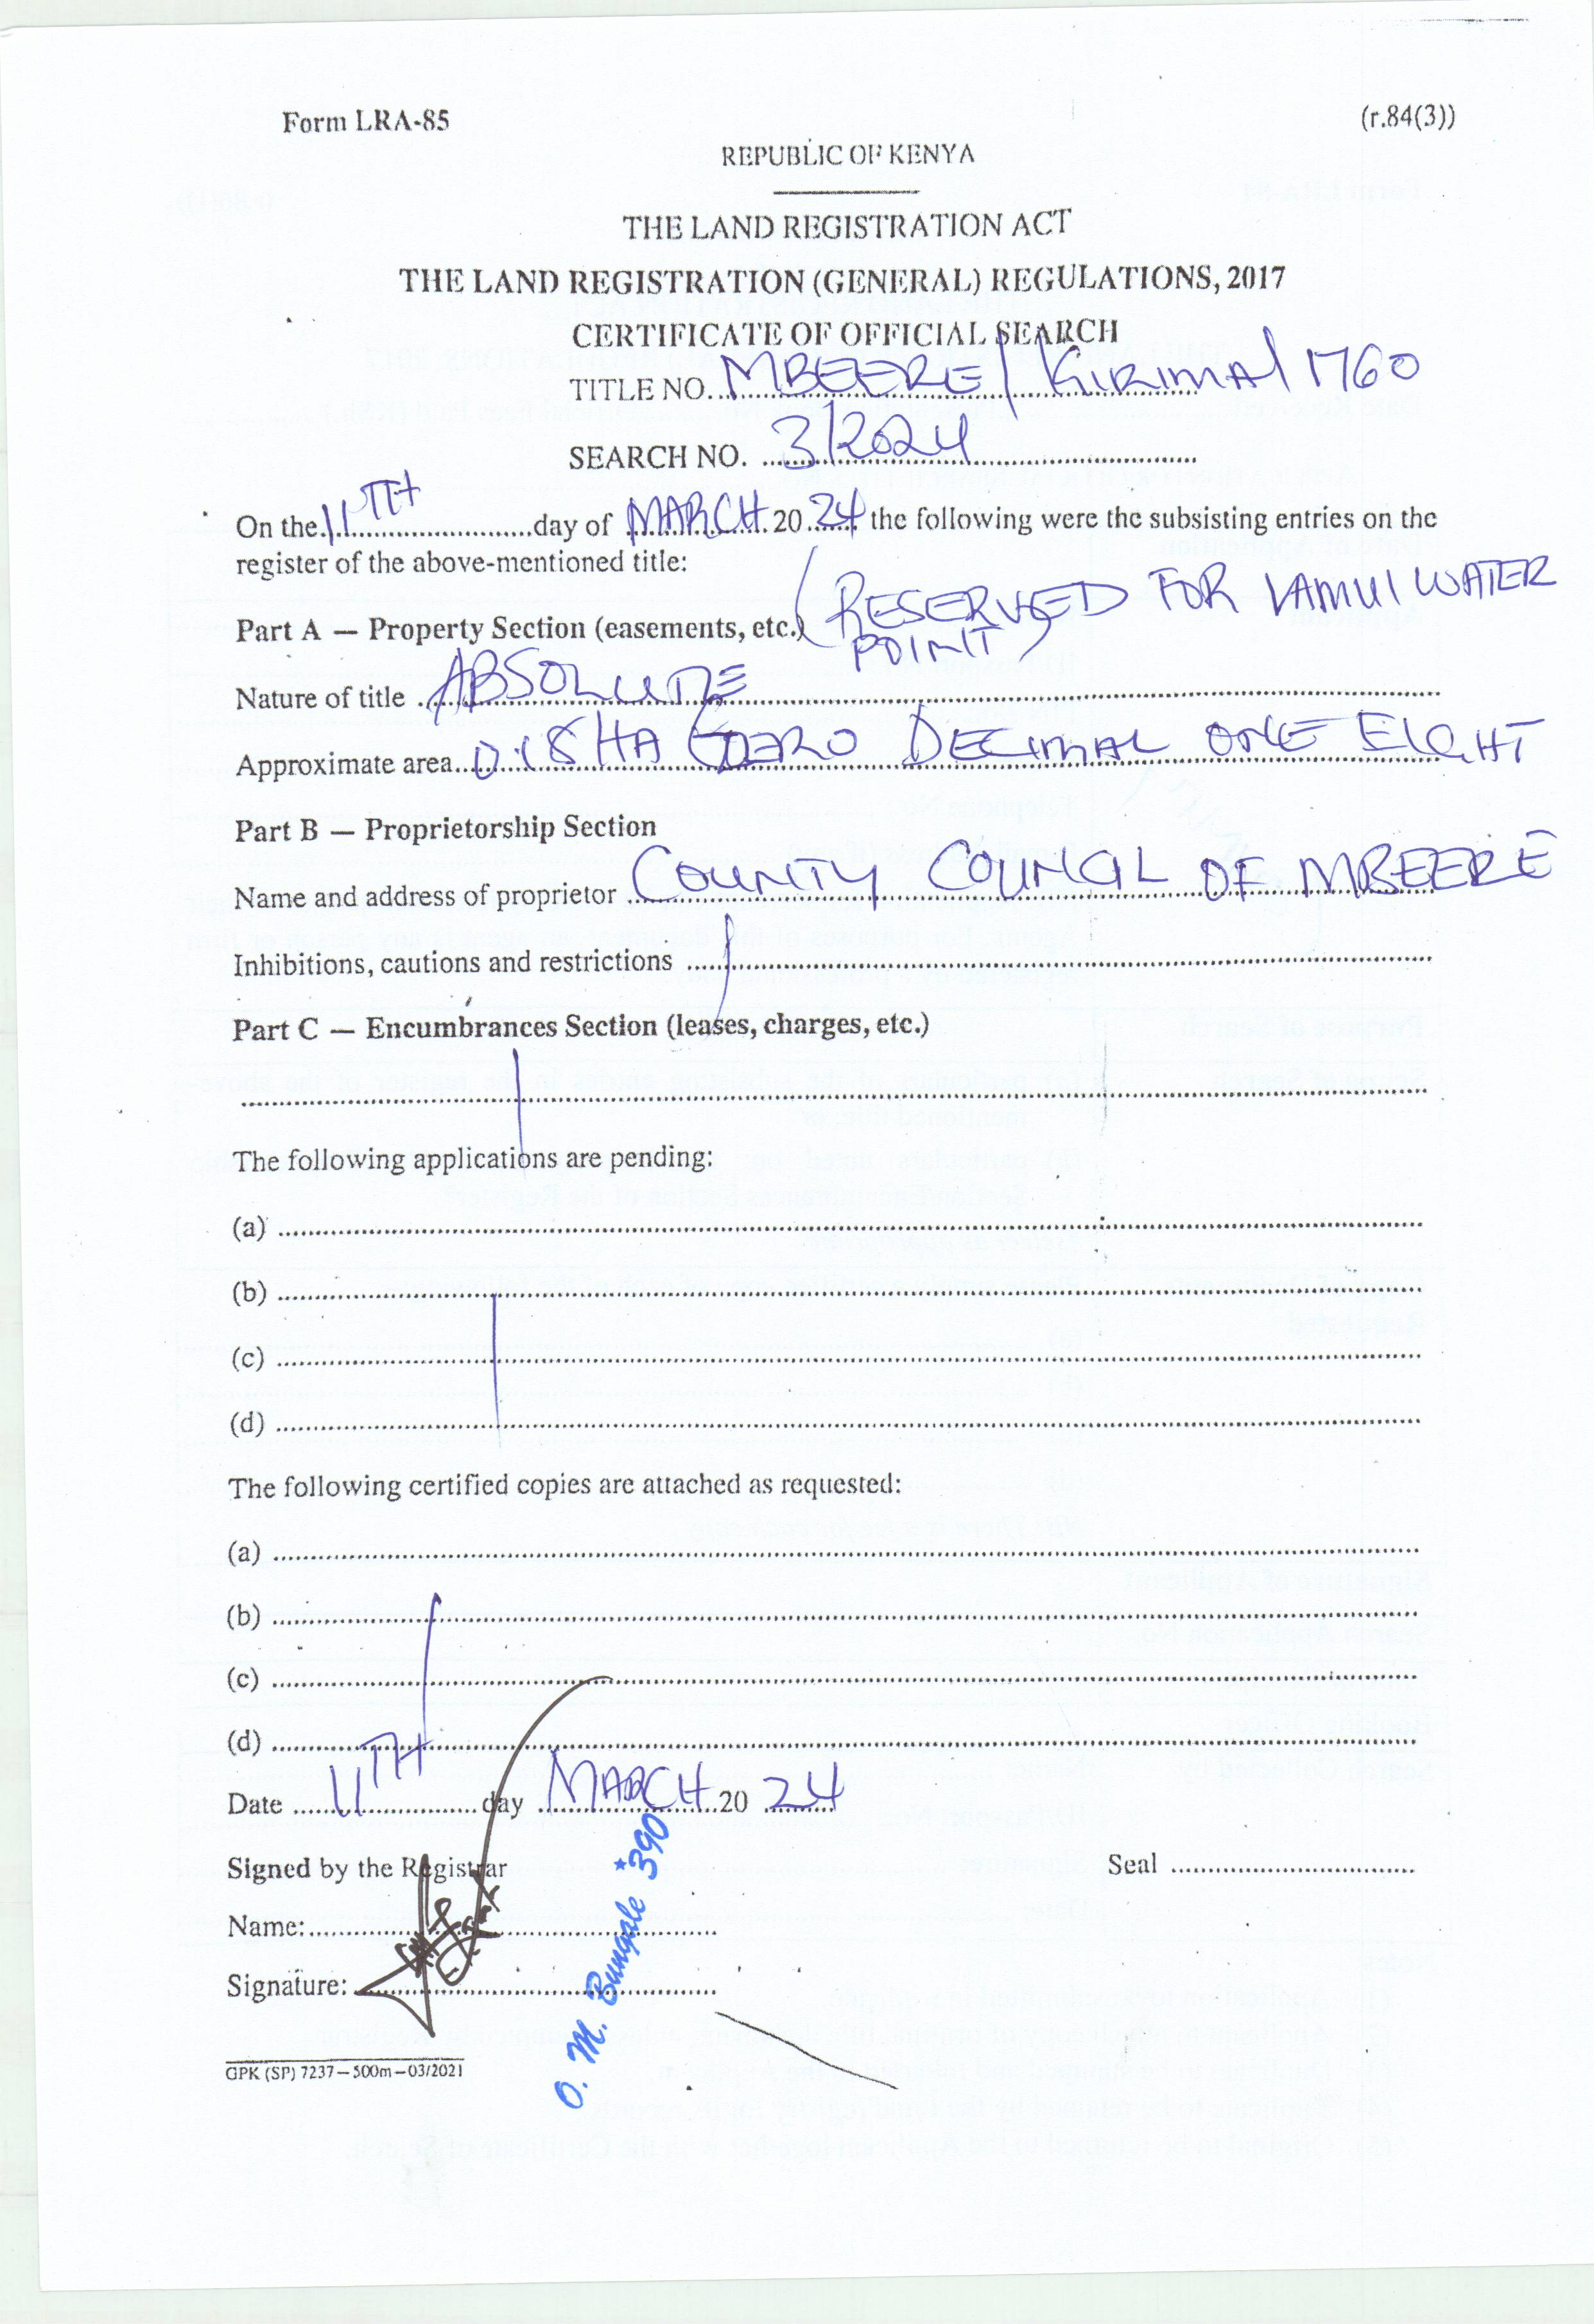 Form LRA-85
(r.84(3))
REPUBLIC OF KENYA
THE LAND REGISTRATION ACT
THE LAND REGISTRATION (GENERAL) REGULATIONS, 2017
CERTIFICATE OF OFFICIAL SEARCH
TITLE NO. MBEERE/KIRIMA/1760
SEARCH NO. 3/2024
On the 11TH day of MARCH 20 24 the following were the subsisting entries on the
register of the above-mentioned title:
Part A — Property Section (easements, etc.) (RESERVED FOR WATER
POINT)
Nature of title ABSOLUTE
Approximate area 0.18HA (ZERO DECIMAL ONE EIGHT
Part B — Proprietorship Section
Name and address of proprietor COUNTY COUNCIL OF MBEERE
Inhibitions, cautions and restrictions
Part C — Encumbrances Section (leases, charges, etc.)
The following applications are pending:
(a)
(b)
(c)
(d)
The following certified copies are attached as requested:
(a)
(b)
(c)
(d)
Date 11TH day MARCH 20 24
Signed by the Registrar
Seal
Name:
Signature:
O. M. Bungale *390
GPK (SP) 7237—500m—03/2021